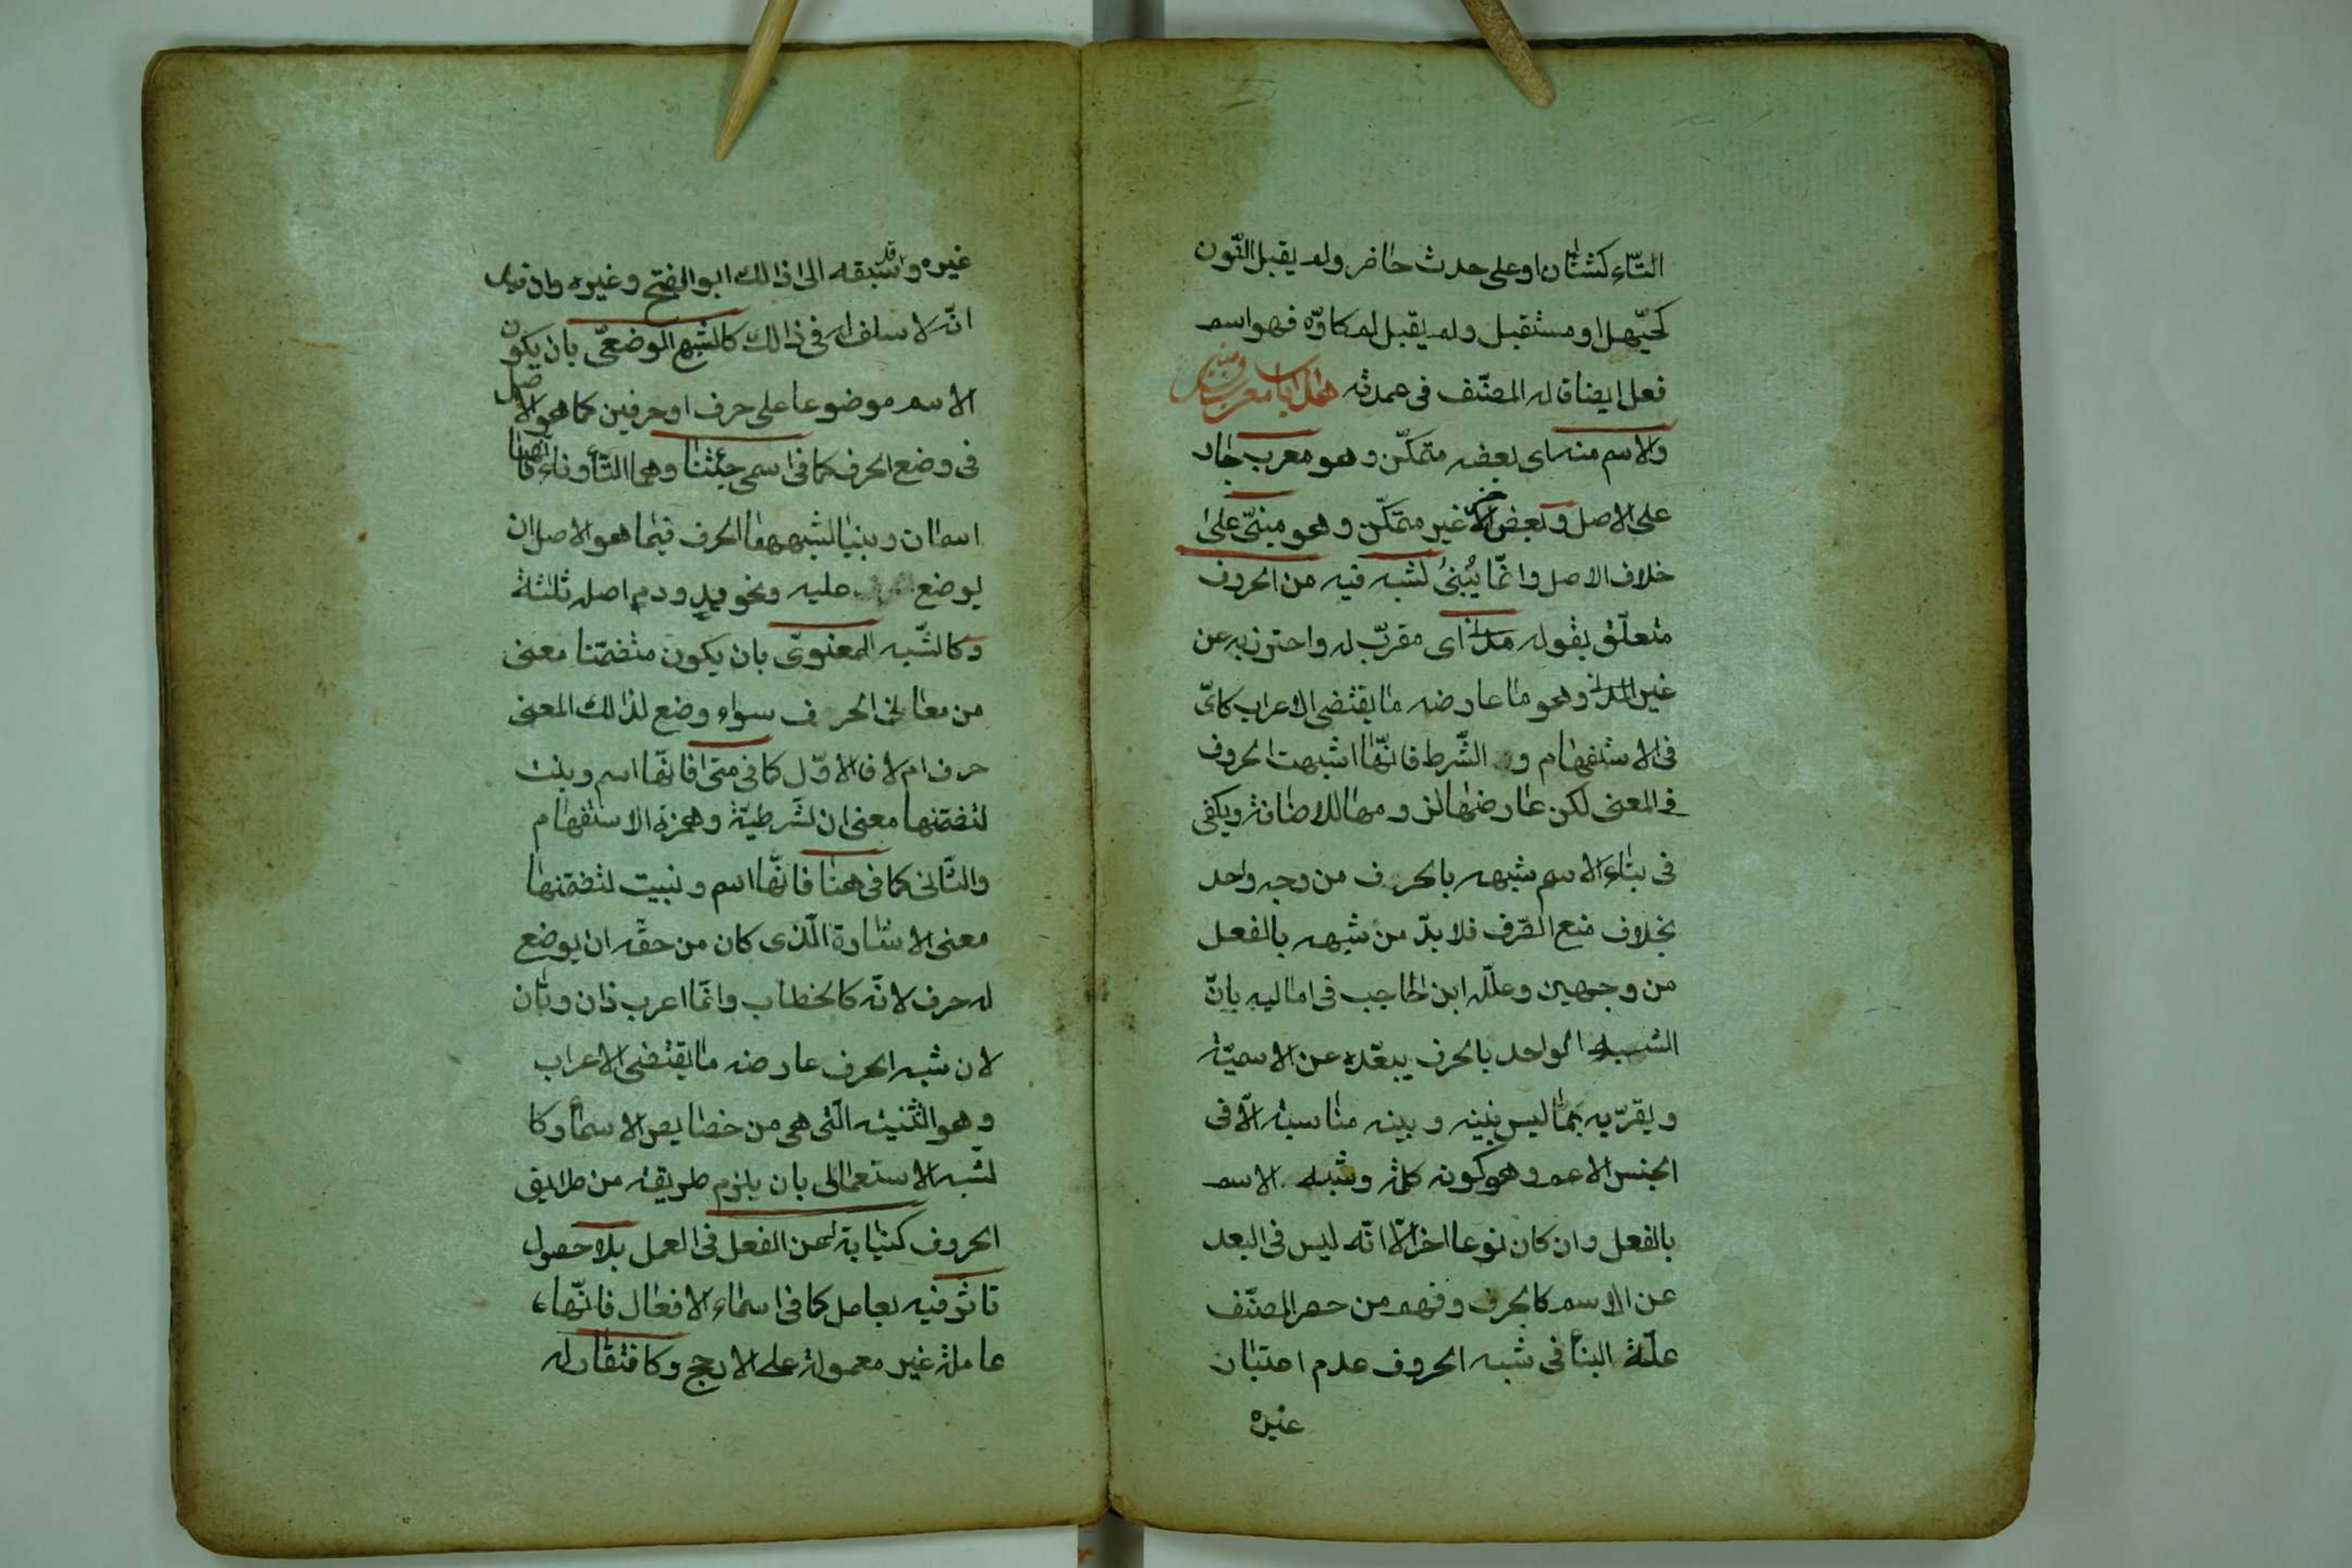 التّاء كشتان او على حدث حاضر ولم يقبل النّون
كحيّهل او مستقبل ولم يقبل لم كاوّه فهو اسم
فعل ايضا قاله المصنّف فى عمدته هذا باب المعرب والمبنى
والاسم منه اى بعضه متمكّن وهو معرب جار
على الاصل وبعض الاخر غير متمكّن وهو مبنىّ على
خلاف الاصل وانّما يُبنىٰ لشبه فيه من الحروف
متعلّق بقوله مدن اى مقرّب له واحترز به عن
غير المدنى وهو ما عارضه ما يقتضى الاعراب كاىّ
فى الاستفهام و الشّرط فانّها اشبهت الحروف
فى المعنى لكن عارضها لزومها للاضافة ويكفى
فى بناء الاسم شبهه بالحرف من وجه واحد
بخلاف منع الصّرف فلا بدّ من شبهه بالفعل
من وجهين وعلّله ابن الحاجب فى اماليه بانّ
الشبه الواحد بالحرف يبعّده عن الاسميّة
ويقرّبه بما ليس بينه وبينه مناسبة الّا فى
الجنس الاعم وهو كونه كلمة وشبه الاسم
بالفعل وان كان نوعا اخر الّا انّه ليس فى البعد
عن الاسم كالحرف وفهم من حصر المصنّف
علّة البنا فى شبه الحروف عدم اعتبار
غيره
غيره وقد سبقه الى ذالك ابو الفتح وغيره وان قيل
انّه لا سلف له فى ذالك كالشبه الوضعىّ بان يكون
الاسم موضوعا على حرف او حرفين كما هو الاصل
فى وضع الحرف كما فى اسمى جئتنا وهما التّاء وناء فانّهما
اسمان وبنيا لشبههما الحرف فيما هو الاصل ان
يوضع عليه ونحو يد ودم اصله ثلثة
وكالشّبه المعنوىّ بان يكون متضمّنا معنى
من معانى الحرف سواء وضع لذالك المعنى
حرف ام لا فالاوّل كما فى متى فانّها اسم وبنيت
لتضمّنها معنى ان الشّرطيّة وهمزة الاستفهام
والثّانى كما فى هنا فانّها اسم وبنيت لتضمّنها
معنى الاشارة الّذى كان من حقّه ان يوضع
له حرف لانّه كالخطاب وانّما اعرب ذان وتان
لان شبه الحرف عارضه ما يقتضى الاعراب
وهو التّثنية الّتى هى من خصايص الاسماء وكا
لشبه الاستعمالى بان يلزم طريقة من طرايق
الحروف كنيابة عن الفعل فى العمل بلا حصول
تاثّر فيه بعامل كما فى اسماء الافعال فانّها
عاملة غير معمولة على الارجح وكافتقار له